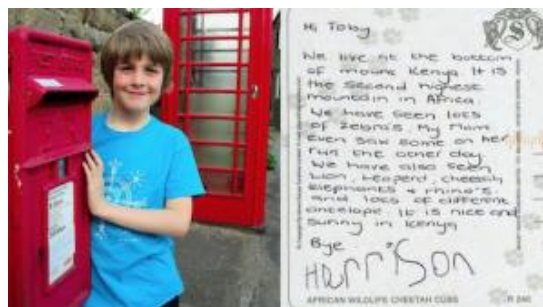 Hi Toby
We live at the bottom
of mount Kenya It is
the second highest
mountain in Africa
We have seen lots
of Zebra's. My Mom
even saw some on her
run the other day
We have also seen
Lion, Leopard, cheetah
elephants + rhino's
and lots of different
antelope. It is nice and
sunny in Kenya
Bye
Harrison
AFRICAN WILDLIFE CHEETAH CUBS
R 240
S